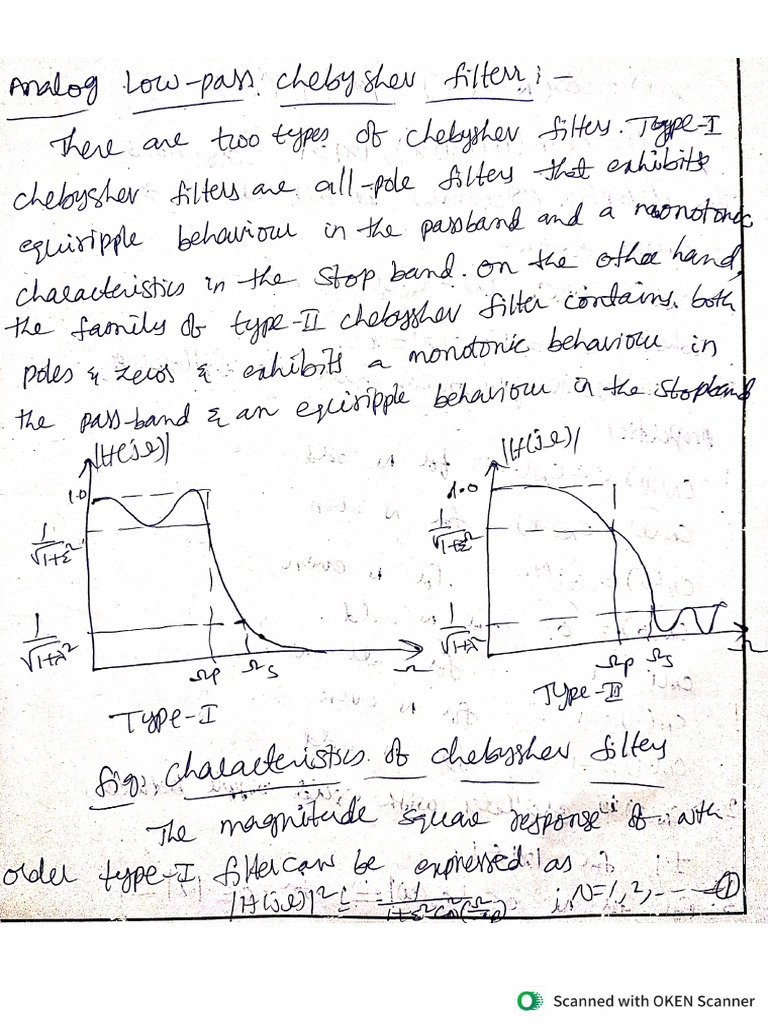 Analog Low-pass Chebyshev filters :-
There are two types of chebyshev filters. Type-I
chebyshev filters are all-pole filters that exhibits
equiripple behaviour in the passband and a monotonic
characteristics in the stop band. on the other hand,
the family of type-II chebyshev filter contains both
poles & zeros & exhibits a monotonic behaviour in
the pass-band & an equiripple behaviour in the stopband
|H(jΩ)|
1.0
1/√1+ε²
1/√1+λ²
Ωp Ωs Ω
Type-I
|H(jΩ)|
1.0
1/√1+ε²
1/√1+λ²
Ωp Ωs Ω
Type-II
fig: characteristics of chebyshev filters
The magnitude square response of nth
order type-I filter can be expressed as
|H(jΩ)|² = 1/1+ε²CN²(Ω/Ωp) ; N=1,2,------ ①
Scanned with OKEN Scanner